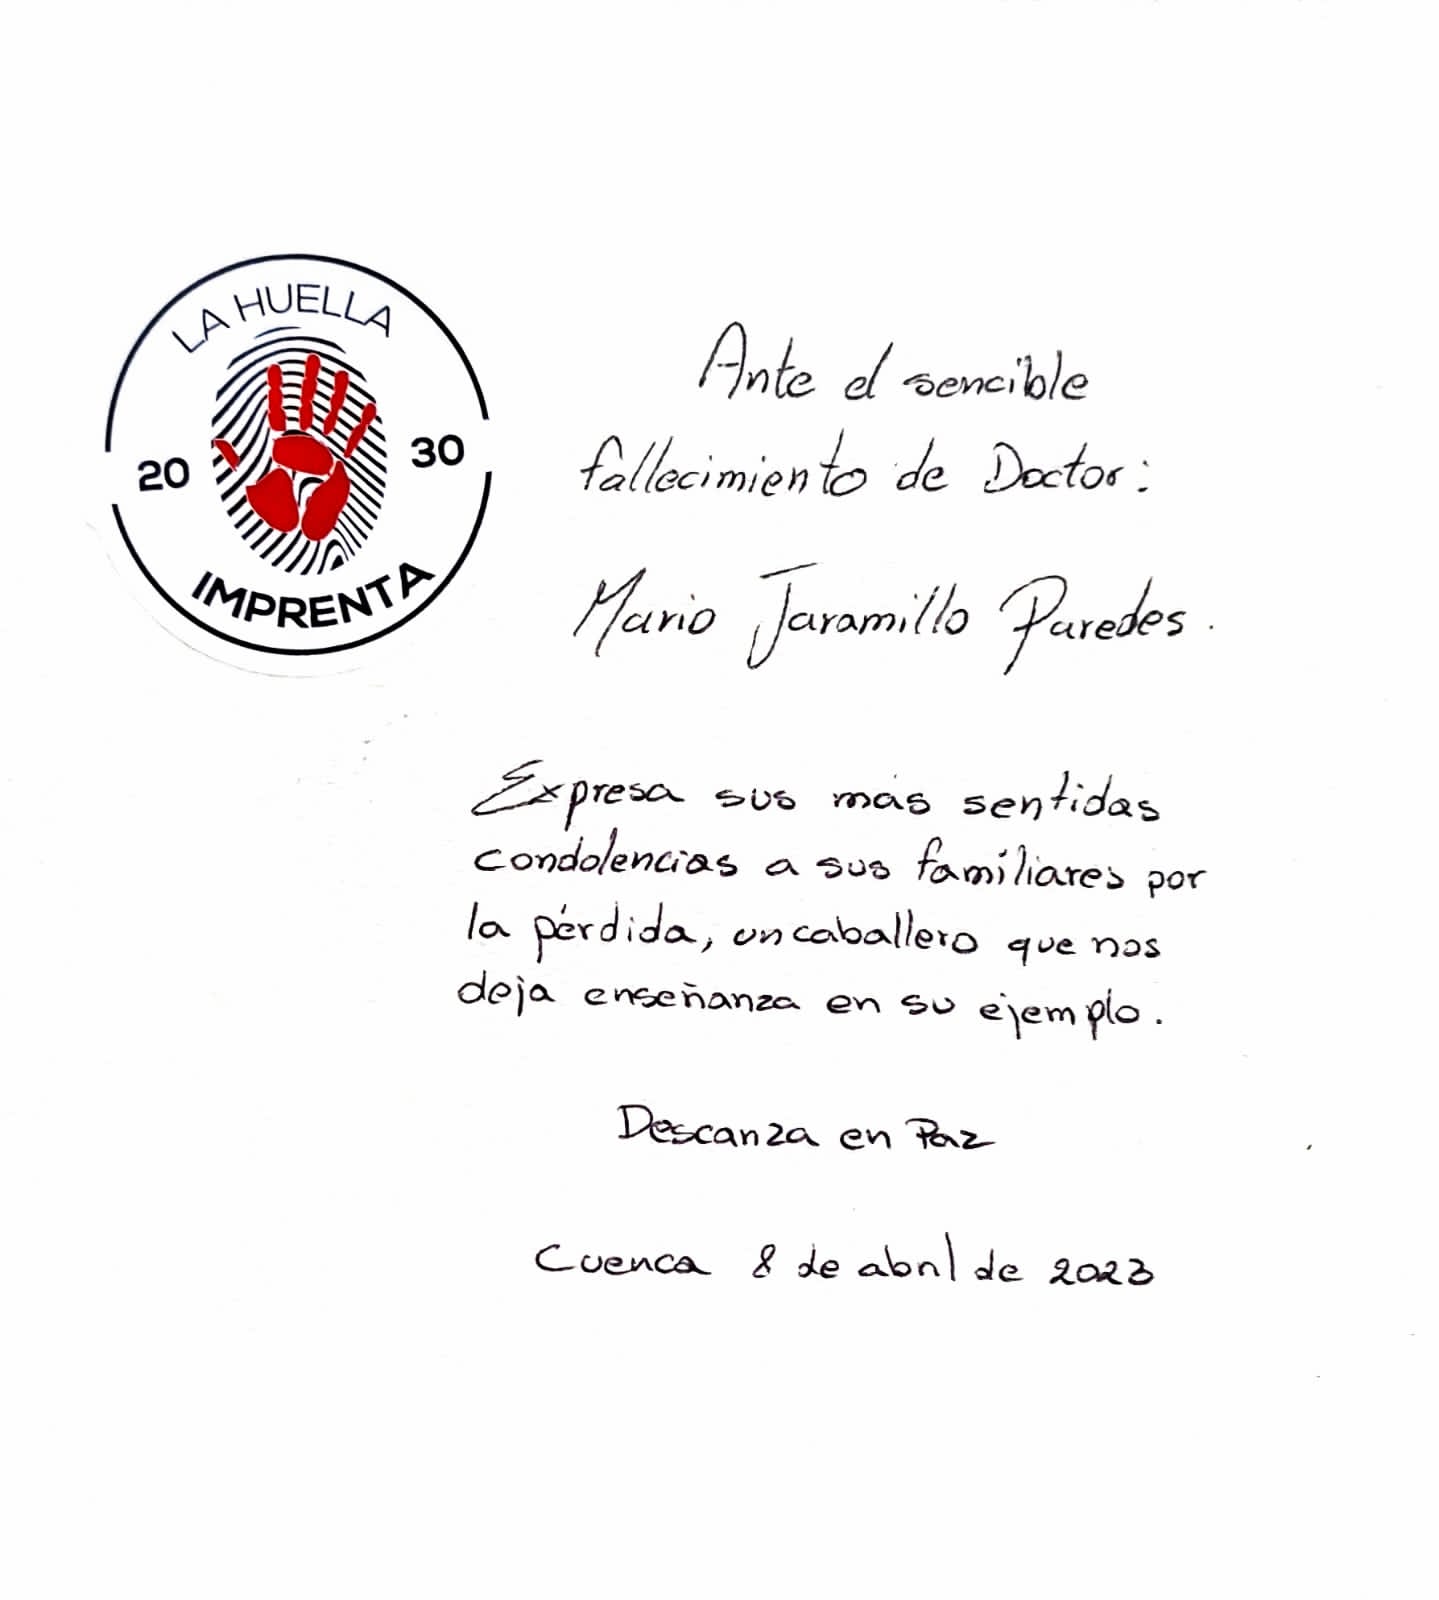 LA HUELLA
20 30
IMPRENTA
Ante el sencible
fallecimiento de Doctor:
Mario Jaramillo Paredes.
Expresa sus más sentidas
condolencias a sus familiares por
la pérdida, un caballero que nos
deja enseñanza en su ejemplo.
Descanza en Paz
Cuenca 8 de abril de 2023